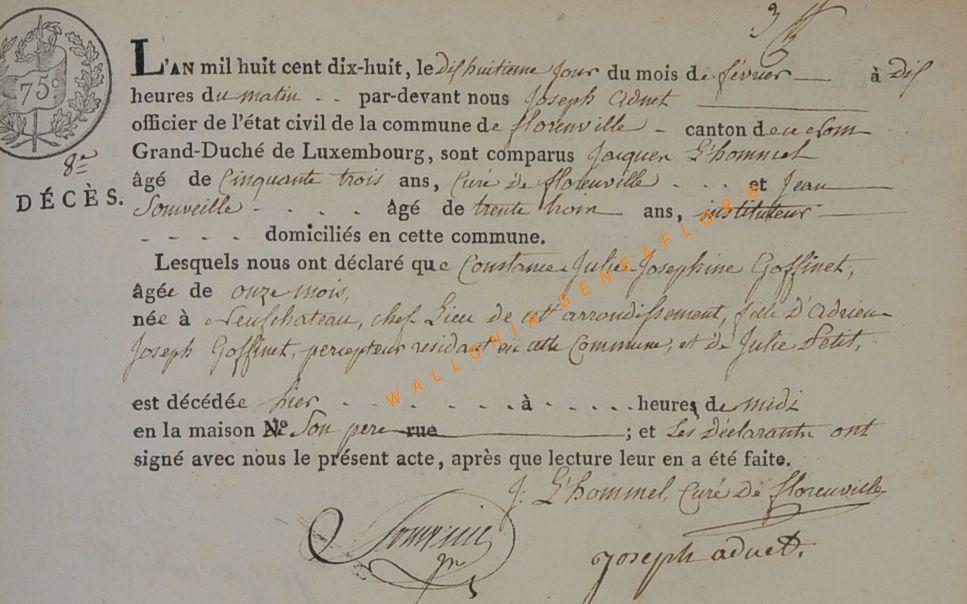 75c
8.e
DÉCÈS.
L'AN mil huit cent dix-huit, le dix huitieme jour du mois de février — à dix
heures du matin . . par-devant nous Joseph Adnet
officier de l'état civil de la commune de florenville - canton de ce nom
Grand-Duché de Luxembourg, sont comparus Jacques L'hommel
âgé de Cinquante trois ans, Curé de florenville . . . et Jean
Sonveille . . . . âgé de trente trois ans, instituteur
- - - - domiciliés en cette commune.
Lesquels nous ont déclaré que Constance Julie Josephine Goffinet,
âgée de onze mois,
née à Neufchateau, chef Lieu de cet arrondissement, fille d'Adrien
Joseph Goffinet, percepteur residant en cette Commune, et de Julie Petit,
est décédée hier . . . . . . . à . . . . . heures de midi
en la maison N.o Son pere rue ; et Les déclarants ont
signé avec nous le présent acte, après que lecture leur en a été faite.
J. L'hommel, Curé de florenville
Joseph adnet.
WALLONIA-GENEAFLOR©